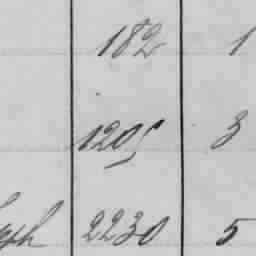 182 1
1205 3
2230 5